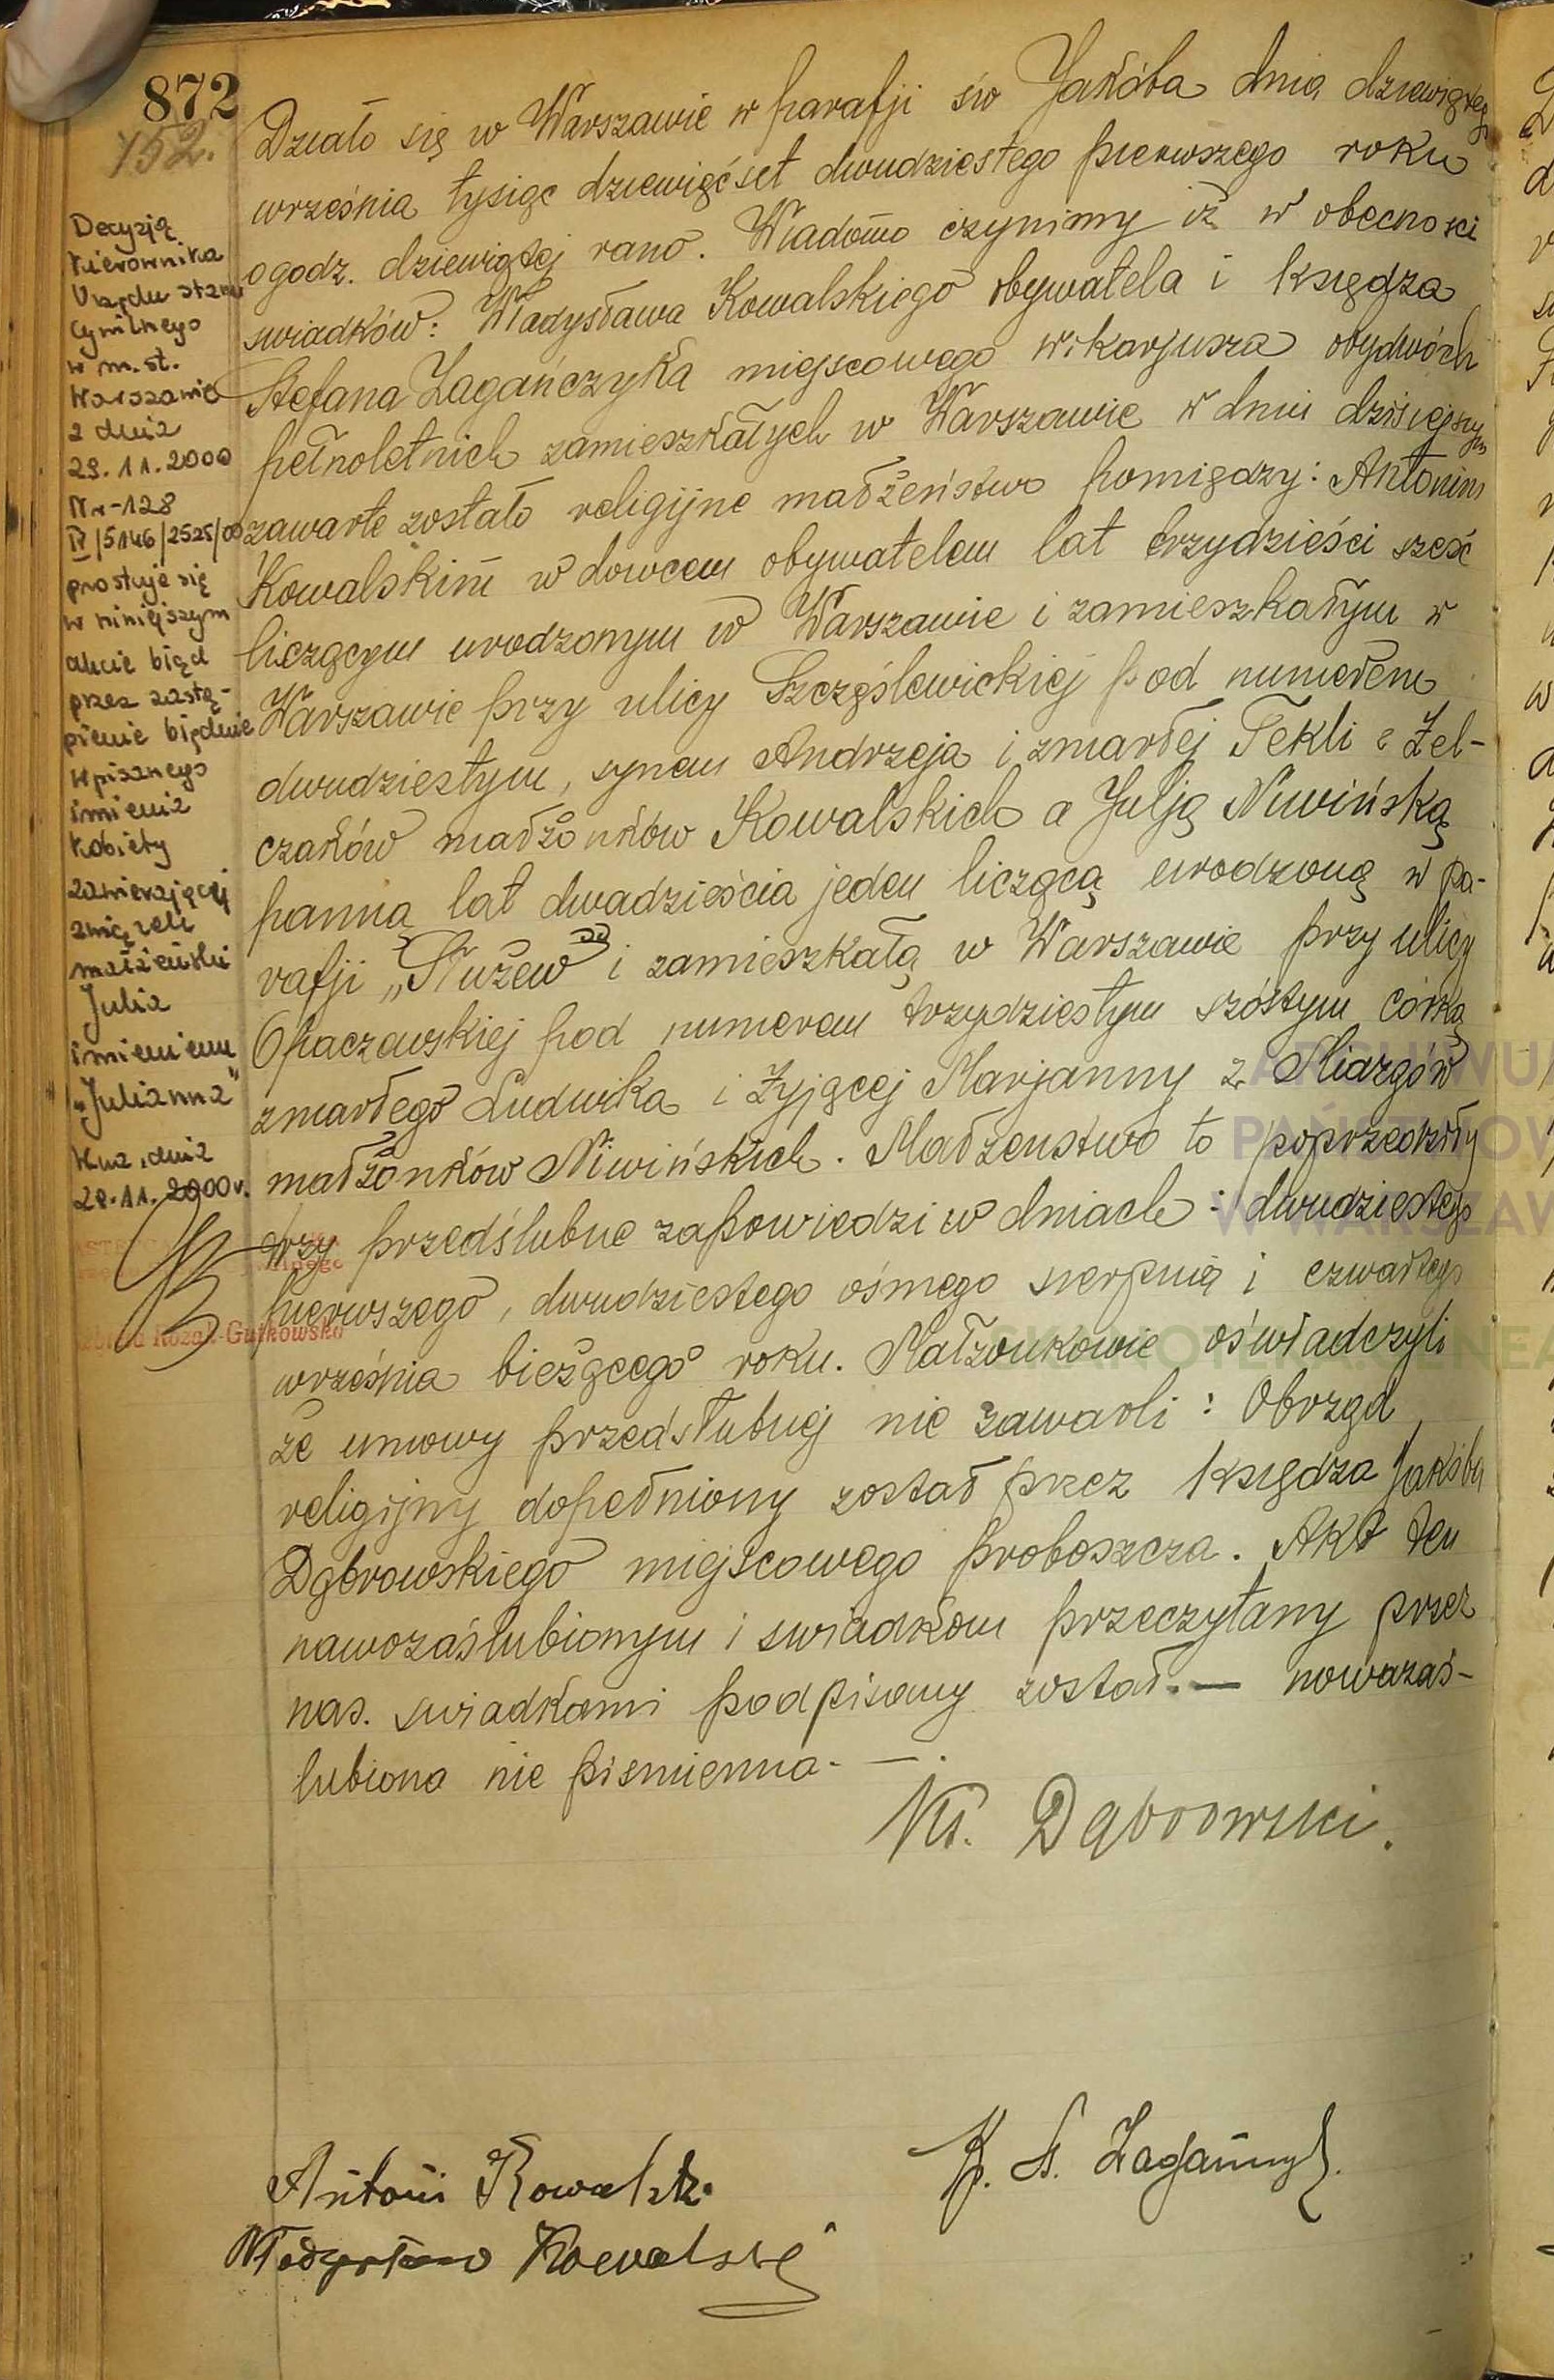 872
152.
Działo się w Warszawie w parafji św Jakóba dnia dziewiątego
września tysiąc dziewięćset dwudziestego pierwszego roku
o godz. dziewiątej rano. Wiadomo czynimy iż w obecności
swiadków: Władysława Kowalskiego obywatela i księdza
Stefana Zagańczyka miejscowego wikarjusza obydwóch
pełnoletnich zamieszkałych w Warszawie w dniu dzisiejszym
zawarte zostało religijne małżeństwo pomiędzy: Antonim
Kowalskim wdowcem obywatelem lat trzydzieści sześć
liczącym urodzonym w Warszawie i zamieszkałym w
Warszawie przy ulicy Szczęśliwickiej pod numerem
dwudziestym, synem Andrzeja i zmarłej Tekli z Żel-
czaków małżonków Kowalskich a Julją Niwińską
panną lat dwadzieścia jeden liczącą urodzoną w pa-
rafji „Służew” i zamieszkałą w Warszawie przy ulicy
Opaczewskiej pod numerem trzydziestym szóstym córką
zmarłego Ludwika i żyjącej Marjanny z Miazgów
małżonków Niwińskich. Małżenstwo to poprzedziły
trzy przedślubne zapowiedzi w dniach: dwudziestego
pierwszego, dwudziestego ośmego sierpnia i czwartego
września bieżącego roku. Małżonkowie oświadczyli
że umowy przedsłubnej nie zawarli: Obrząd
religijny dopełniony został przez księdza Jakóba
Dąbrowskiego miejscowego proboszcza. Akt ten
nawozaślubionym i swiadkom przeczytany przez
nas. swiadkami podpisany został. — nowozaś-
lubiona nie pismienna. — .
Ks. Dąbrowski.
Antoni Kowalski
Władysław Kowalski
K. S. Zagańczyk.
Decyzją
Kierownika
Urzędu stanu
Cywilnego
w m. st.
Warszawie
z dnia
29.11.2000
Nr-128
IV/5146/2525/00
prostuje się
w niniejszym
akcie błąd
przez zastą-
pienie błędnie
wpisanego
imienia
kobiety
zawierającej
związek
małżeński
Julia
imieniem
„Julianna”
W-wa, dnia
29.11.2000 r.
Kozak-Gutkowska
ARCHIWUM
PAŃSTWOW
W WARSZAW